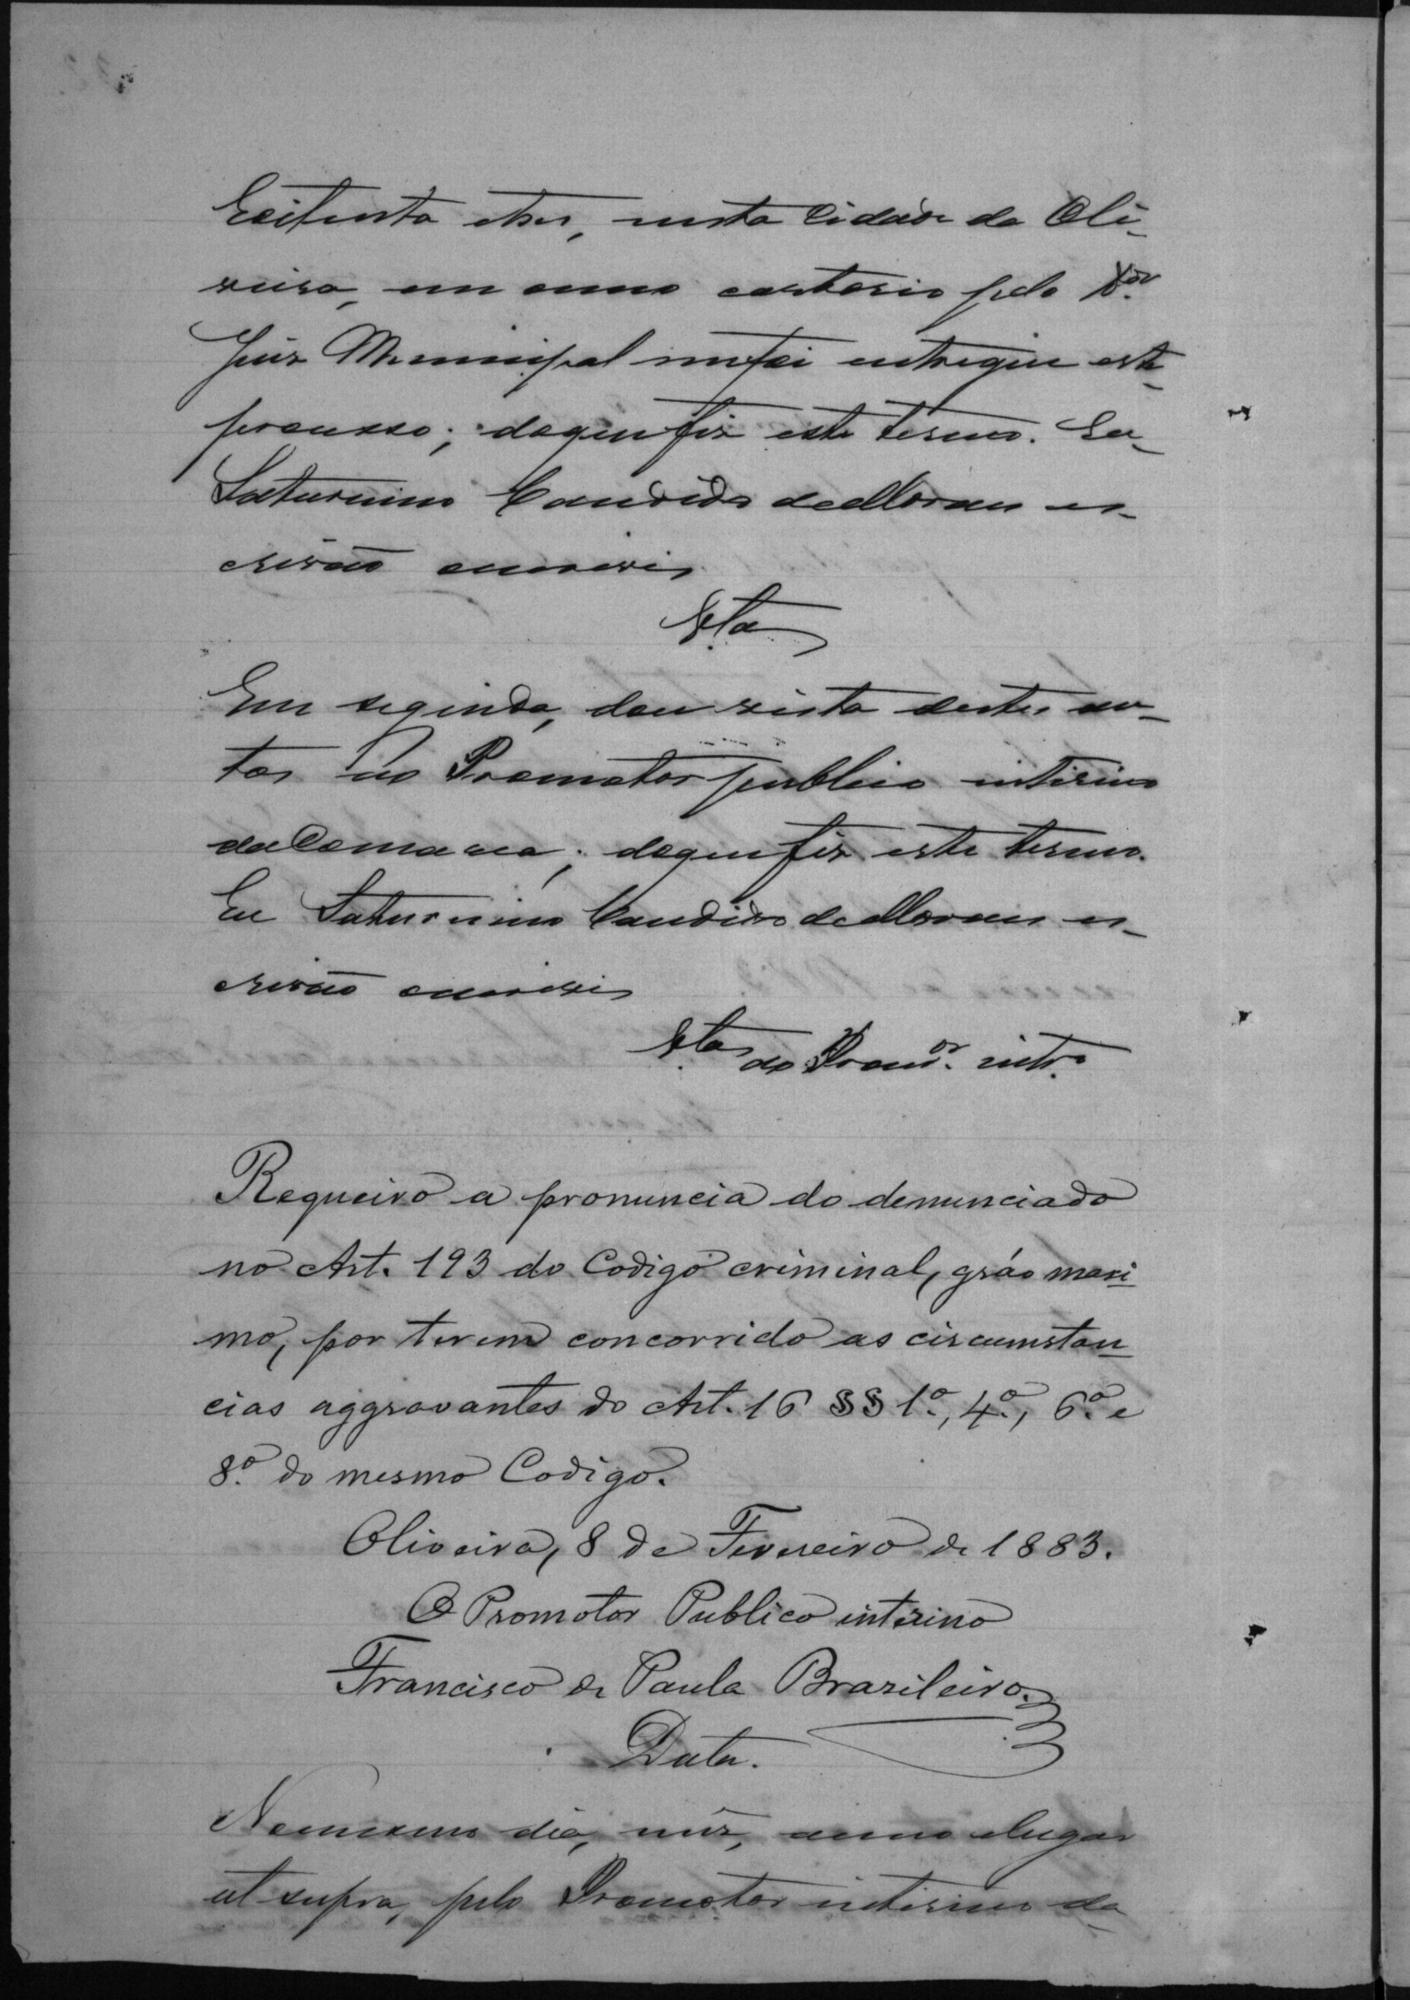 Exitenta etres, nesta Cidade de Oli-
veira, em meu cartorio pelo Dor.
Juiz Municipal me foi entregue este
processo; do que fiz este termo. Eu
Saturnino Candido de Moraes es-
crivão escrevi
Vta
Em seguida, dou vista destes au-
tos ao Promotor publico interino
da Comarca; do que fiz este termo.
Eu Saturnino Candido de Moraes es-
crivão escrevi
Vta ao Promor. intro.
Requeiro a pronuncia do denunciado
no Art. 193 do Codigo criminal, gráo maxi-
mo, por terem concorrido as circumstan-
cias aggravantes do Art. 16 §§ 1º, 4º, 6º e
8º do mesmo Codigo.
Oliveira, 8 de Fevereiro de 1883.
O Promotor Publico interino
Francisco de Paula Brazileiro.
Data.
No mesmo dia, mez, anno e lugar
ut supra, pelo Promotor interino da